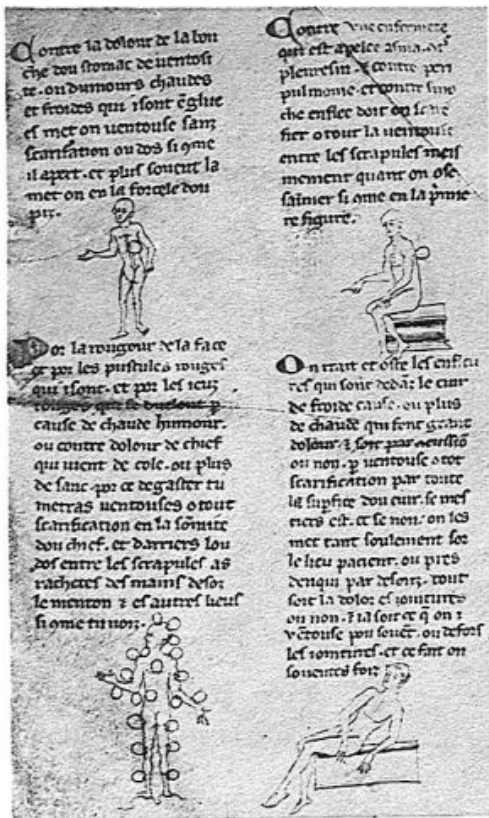 Contre la dolour de la bou
che dou stomac de ventosi
te. ou dumours chaudes
et froides qui i sont
es met on ventouse sanz
scarifation ou dos si
il apert. et plus souent la
met on en la forcele dou
piz.
Por la rougour de la face
et por les pustules rouges
qui i sont. et por les ieuz
rouges qui se duelont p
cause de chaude humour.
ou contre dolour de chief
qui vient de cole. ou plus
de sanc. por ce degaster tu
metras ventouses o tout
scarification en la
dou chief. et darriers lou
dos entre les scrapules. as
rachetes des mains desor
le menton et es autres lieus
si tu voiz.
Contre vne enfermete
qui est apelee asma.
pleuresin. et contre peri
pulmonie. et contre
che enflee doit on scari
fier o tout la ventouse
entre les scrapules meis
mement quant on ose
saimier si en la
re figure.
On trait et oste les enfleu
res qui sont le cuir
de froide cause. ou plus
de chaude qui font grant
dolour. et soit par
ou non. p ventouse o tot
scarification par toute
la dou cuir. se mes
tiers est. et se non. on les
met tant soulement sor
le lieu pacient. ou pres
denqui par desouz. tout
soit la dolor es iointures
ou non.
ventouse pou souent. ou defors
les iointures. et ce fait on
souentes foiz